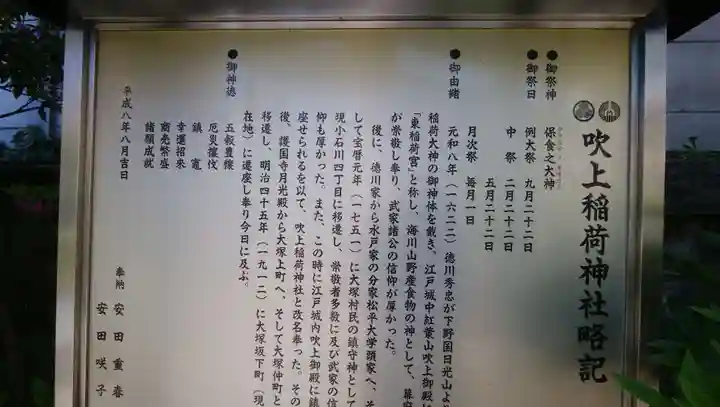 吹上稲荷神社略記
●御祭神 保食之大神
●御祭日 例大祭 九月二十二日
中祭 二月二十二日
五月二十二日
月次祭 毎月一日
●御由緒 元和八年（一六二二）徳川秀忠が下野国日光山より
稲荷大神の御神体を戴き、江戸城中紅葉山吹上御殿に
「東稲荷宮」と称し、海川山野産食物の神として、幕
が崇敬し奉り、武家諸公の信仰が厚かった。
後に、徳川家から水戸家の分家松平大学頭家へ、そ
して宝暦元年（一七五一）に大塚村民の鎮守神として
現小石川四丁目に移遷し、崇敬者多数に及び武家の信
仰も厚かった。また、この時に江戸城内吹上御殿に鎮
座せられるを以て、吹上稲荷神社と改名奉った。その
後、護国寺月光殿から大塚上町へ、そして大塚仲町と
移遷し、明治四十五年（一九一二）に大塚坂下町（現
在地）に遷座し奉り今日に及ぶ。
●御神徳 五穀豊穣
厄災攘攸
鎮竃
幸運招来
商売繁盛
諸願成就
平成八年八月吉日
奉納 安田重春
安田咲子